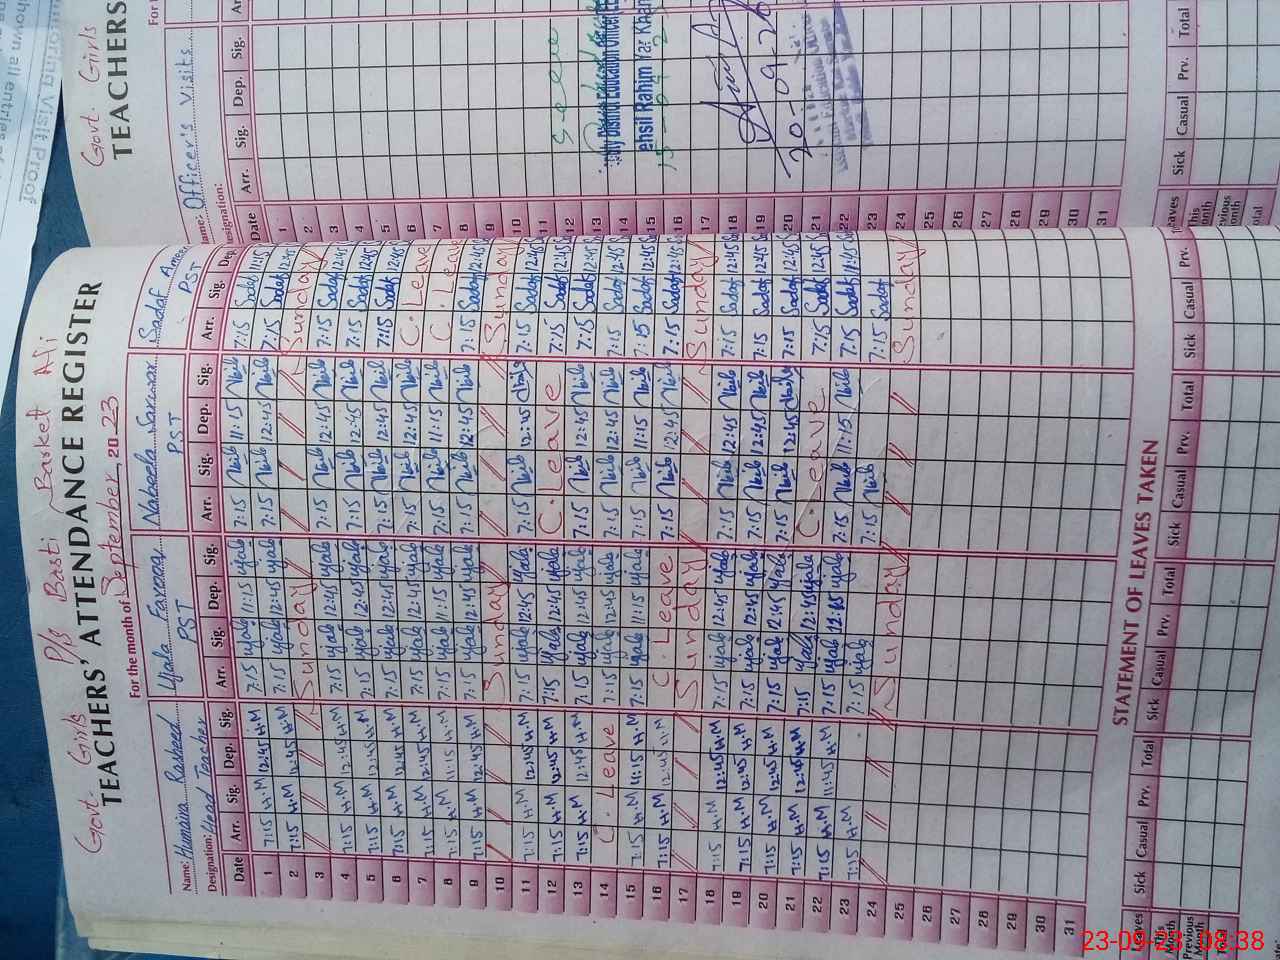 Govt. Girls P/s Basti Barket Ali
TEACHERS' ATTENDANCE REGISTER
For the month of September, 2023
Name: Humaira Rasheed Ujala Farooq Nabeela Sarwar Sadaf Ameen
Designation: Head Teacher PST PST PST
Date Arr. Sig. Dep. Sig. Arr. Sig. Dep. Sig. Arr. Sig. Dep. Sig. Arr. Sig. Dep.
1 7:15 H.M 12:45 H.M 7:15 Ujala 11:15 Ujala 7:15 11:15 7:15 Sadaf 11:45
2 7:15 H.M 12:45 H.M 7:15 Ujala 12:45 Ujala 7:15 12:45 7:15 Sadaf 12:45
3 Sunday Sunday
4 7:15 H.M 12:45 H.M 7:15 Ujala 12:45 Ujala 7:15 12:45 7:15 Sadaf 12:45
5 7:15 H.M 12:45 H.M 7:15 Ujala 12:45 Ujala 7:15 12:45 7:15 Sadaf 12:45
6 7:15 H.M 12:45 H.M 7:15 Ujala 12:45 Ujala 7:15 12:45 7:15 Sadaf 12:45
7 7:15 H.M 12:45 H.M 7:15 Ujala 12:45 Ujala 7:15 12:45 C. Leave
8 7:15 H.M 11:15 H.M 7:15 Ujala 11:15 Ujala 7:15 11:15 C. Leave
9 7:15 H.M 12:45 H.M 7:15 Ujala 12:45 Ujala 7:15 12:45 7:15 Sadaf 12:45
10 Sunday Sunday
11 7:15 H.M 12:45 H.M 7:15 Ujala 12:45 Ujala 7:15 12:45 7:15 Sadaf 12:45
12 7:15 H.M 12:45 H.M 7:15 Ujala 12:45 Ujala C. Leave 7:15 Sadaf 12:45
13 7:15 H.M 12:45 H.M 7:15 Ujala 12:45 Ujala 7:15 12:45 7:15 Sadaf 12:45
14 C. Leave 7:15 Ujala 12:45 Ujala 7:15 12:45 7:15 Sadaf 12:45
15 7:15 H.M 11:15 H.M 7:15 Ujala 11:15 Ujala 7:15 11:15 7:15 Sadaf 12:45
16 7:15 H.M 12:45 H.M C. Leave 7:15 12:45 7:15 Sadaf 12:45
17 Sunday Sunday
18 7:15 H.M 12:45 H.M 7:15 Ujala 12:45 Ujala 7:15 12:45 7:15 Sadaf 12:45
19 7:15 H.M 12:45 H.M 7:15 Ujala 12:45 Ujala 7:15 12:45 7:15 Sadaf 12:45
20 7:15 H.M 12:45 H.M 7:15 Ujala 12:45 Ujala 7:15 12:45 7:15 Sadaf 12:45
21 7:15 H.M 12:45 H.M 7:15 Ujala 12:45 Ujala C. Leave 7:15 Sadaf 12:45
22 7:15 H.M 11:45 H.M 7:15 Ujala Ujala 7:15 11:15 7:15 Sadaf 11:45
23 7:15 H.M 7:15 Ujala 7:15 7:15 Sadaf
24 Sunday Sunday
25
26
27
28
29
30
31
STATEMENT OF LEAVES TAKEN
Leaves Sick Casual Prv. Total Sick Casual Prv. Total Sick Casual Prv. Total Sick Casual Prv.
This Month
Previous Month
Total
Govt. Girls
TEACHERS
Name: Officer's Visits
Designation:
Date Arr. Sig. Dep. Sig.
1
2
3
4
5
6
7
8
9
10
11
12
13
14
15
16
17
18
19
20
21
22
23
24
25
26
27
28
29
30
31
Seen
District Education Officer
Tehsil Rahim Yar Khan
20-09-23
Leaves Sick Casual Prv. Total
This Month
Previous Month
Total
Visit Proof
23-09-23 08:38